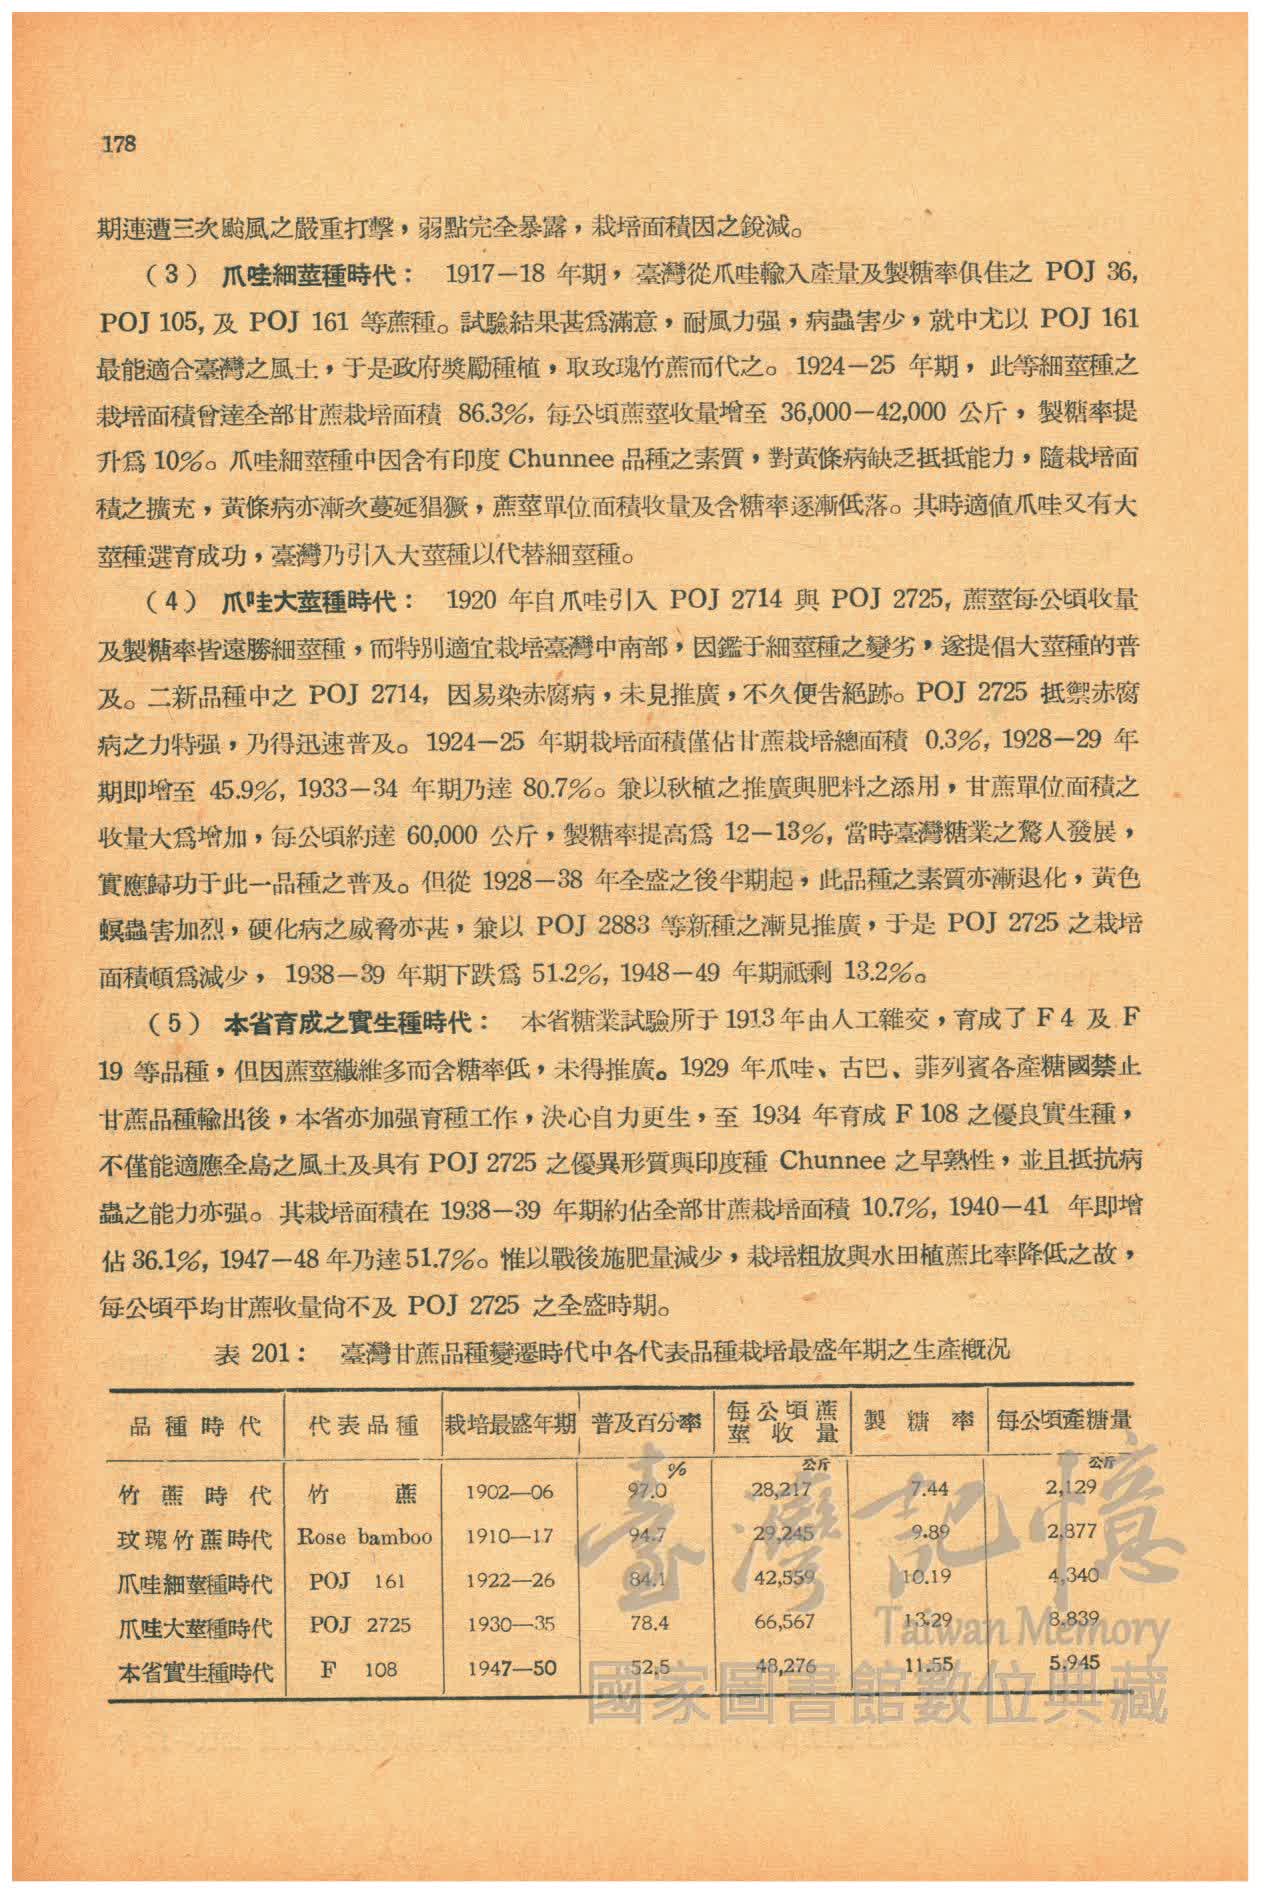 178
期連遭三次颱風之嚴重打擊，弱點完全暴露，栽培面積因之銳減。
（3） 爪哇細莖種時代： 1917—18 年期，臺灣從爪哇輸入產量及製糖率俱佳之 POJ 36,
POJ 105, 及 POJ 161 等蔗種。試驗結果甚爲滿意，耐風力强，病蟲害少，就中尤以 POJ 161
最能適合臺灣之風土，于是政府獎勵種植，取玫瑰竹蔗而代之。1924—25 年期，此等細莖種之
栽培面積曾達全部甘蔗栽培面積 86.3%, 每公頃蔗莖收量增至 36,000—42,000 公斤，製糖率提
升爲 10%。爪哇細莖種中因含有印度 Chunnee 品種之素質，對黃條病缺乏抵抵能力，隨栽培面
積之擴充，黃條病亦漸次蔓延猖獗，蔗莖單位面積收量及含糖率逐漸低落。其時適值爪哇又有大
莖種選育成功，臺灣乃引入大莖種以代替細莖種。
（4） 爪哇大莖種時代： 1920 年自爪哇引入 POJ 2714 與 POJ 2725, 蔗莖每公頃收量
及製糖率皆遠勝細莖種，而特別適宜栽培臺灣中南部，因鑑于細莖種之變劣，遂提倡大莖種的普
及。二新品種中之 POJ 2714, 因易染赤腐病，未見推廣，不久便告絕跡。POJ 2725 抵禦赤腐
病之力特强，乃得迅速普及。1924—25 年期栽培面積僅佔甘蔗栽培總面積 0.3%, 1928—29 年
期即增至 45.9%, 1933—34 年期乃達 80.7%。兼以秋植之推廣與肥料之添用，甘蔗單位面積之
收量大爲增加，每公頃約達 60,000 公斤，製糖率提高爲 12—13%, 當時臺灣糖業之驚人發展，
實應歸功于此一品種之普及。但從 1928—38 年全盛之後半期起，此品種之素質亦漸退化，黃色
螟蟲害加烈，硬化病之威脅亦甚，兼以 POJ 2883 等新種之漸見推廣，于是 POJ 2725 之栽培
面積頓爲減少， 1938—39 年期下跌爲 51.2%, 1948—49 年期祇剩 13.2%。
（5） 本省育成之實生種時代： 本省糖業試驗所于 1913 年由人工雜交，育成了 F 4 及 F
19 等品種，但因蔗莖纖維多而含糖率低，未得推廣。1929 年爪哇、古巴、菲列賓各產糖國禁止
甘蔗品種輸出後，本省亦加强育種工作，決心自力更生，至 1934 年育成 F 108 之優良實生種，
不僅能適應全島之風土及具有 POJ 2725 之優異形質與印度種 Chunnee 之早熟性，並且抵抗病
蟲之能力亦强。其栽培面積在 1938—39 年期約佔全部甘蔗栽培面積 10.7%, 1940—41 年即增
佔 36.1%, 1947—48 年乃達 51.7%。惟以戰後施肥量減少，栽培粗放與水田植蔗比率降低之故，
每公頃平均甘蔗收量尙不及 POJ 2725 之全盛時期。
表 201： 臺灣甘蔗品種變遷時代中各代表品種栽培最盛年期之生產概況
品種時代 代表品種 栽培最盛年期 普及百分率 每公頃蔗莖收量 製糖率 每公頃產糖量
% 公斤 公斤
竹蔗時代 竹蔗 1902—06 97.0 28,217 7.44 2,129
玟瑰竹蔗時代 Rose bamboo 1910—17 94.7 29,245 9.89 2,877
爪哇細莖種時代 POJ 161 1922—26 84.1 42,559 10.19 4,340
爪哇大莖種時代 POJ 2725 1930—35 78.4 66,567 13.29 8,839
本省實生種時代 F 108 1947—50 52.5 48,276 11.55 5,945
臺灣記憶
Taiwan Memory
國家圖書館數位典藏